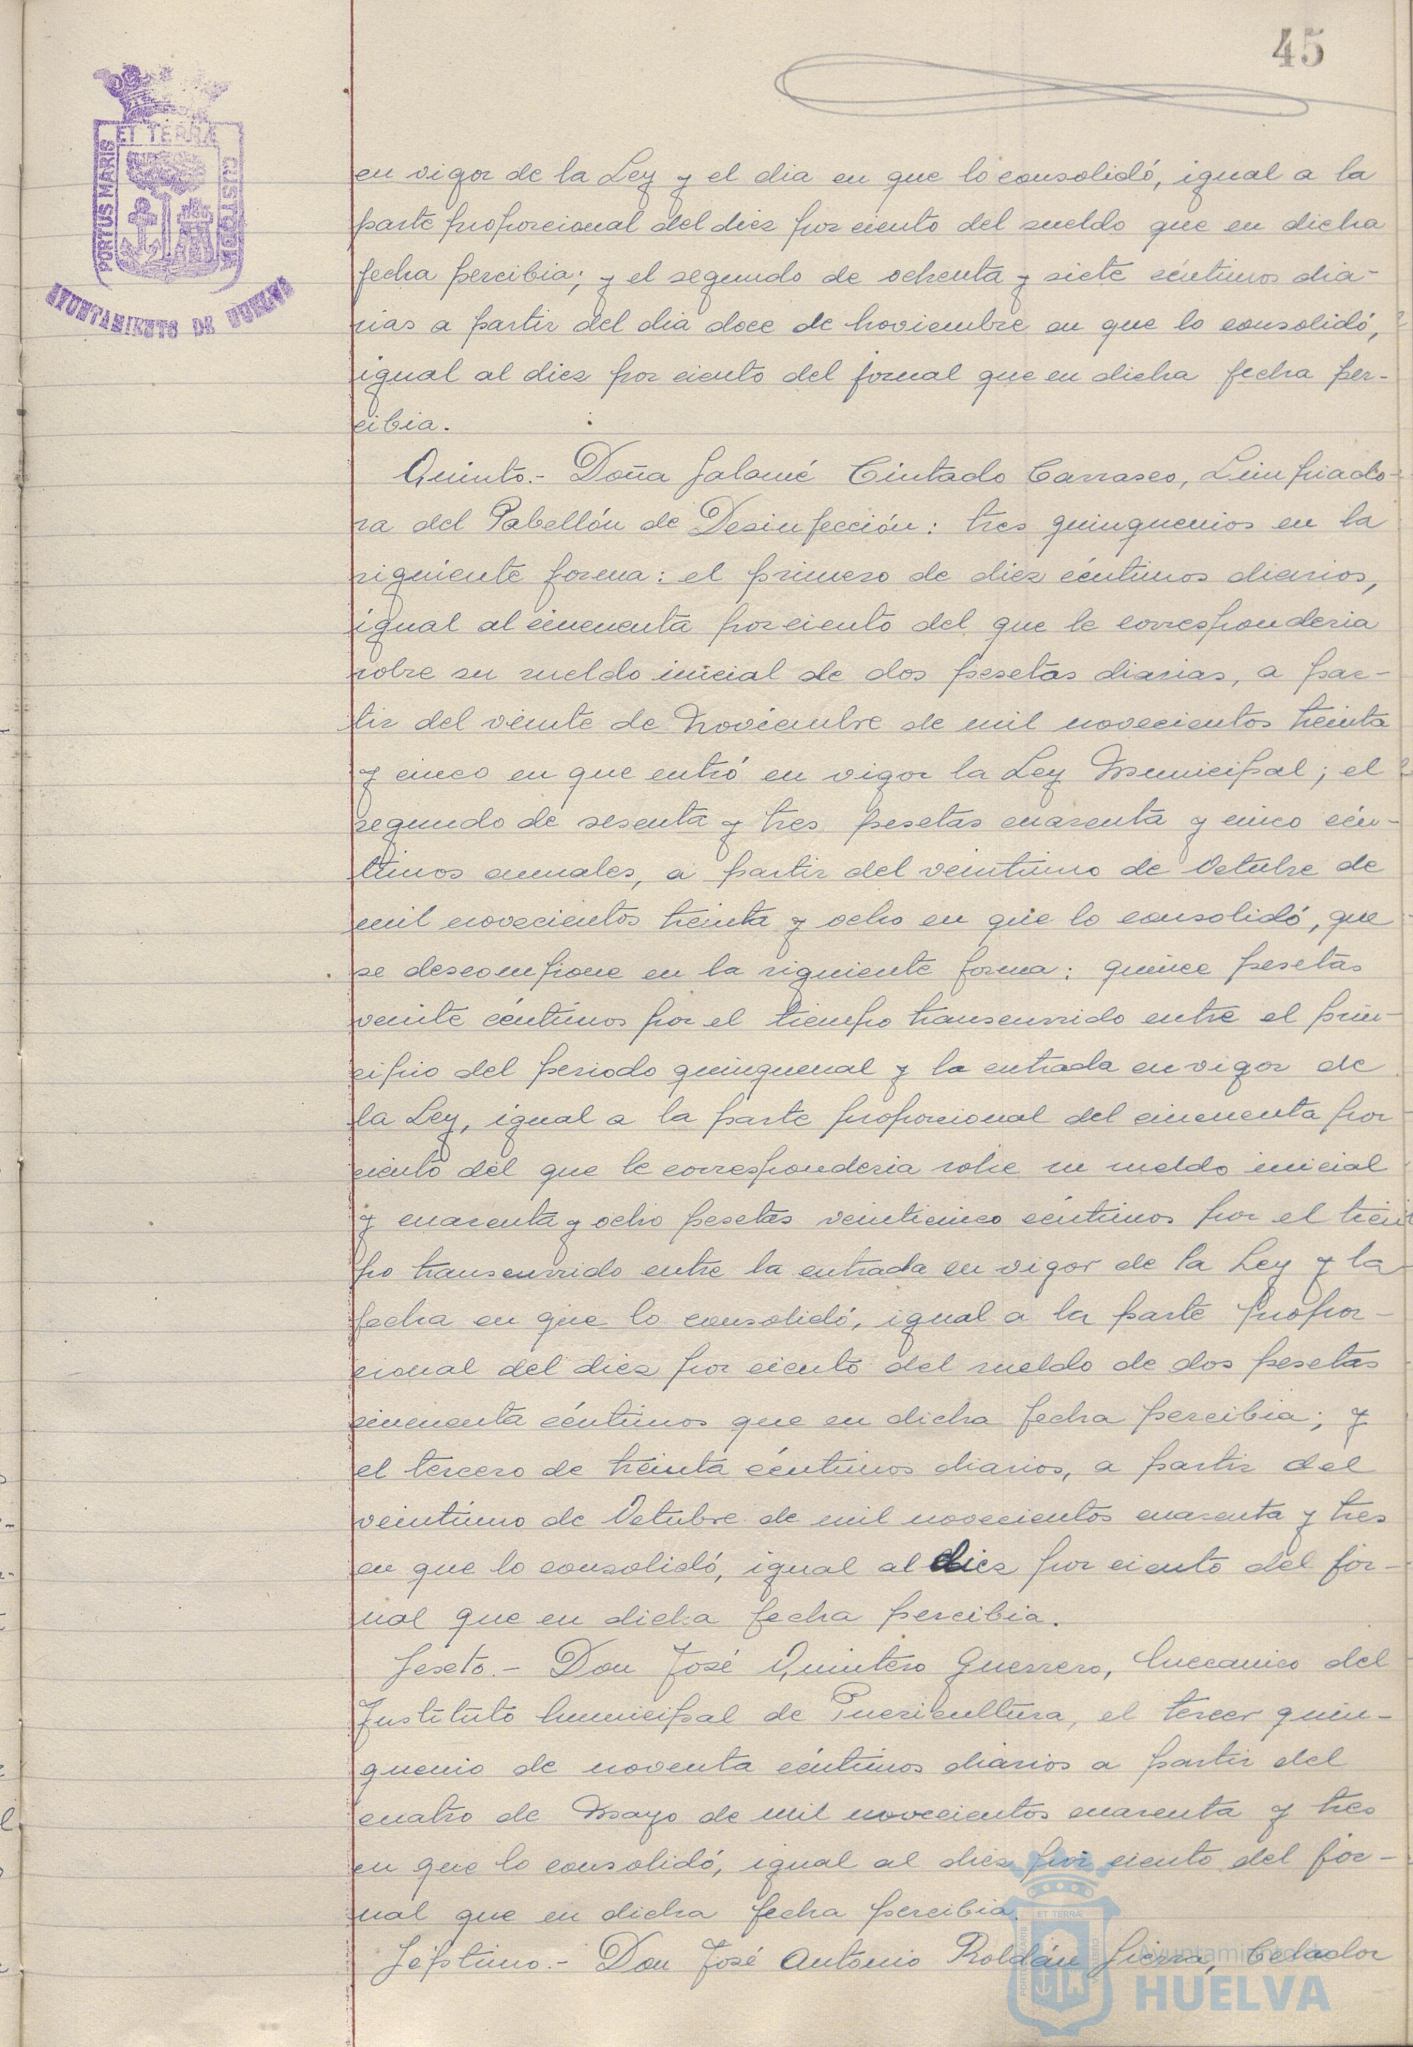 45
ET TERRA
PORTUS MARIS
CUSTODIA
AYUNTAMIENTO DE HUELVA
en vigor de la Ley y el dia en que lo consolidó, igual a la
parte proporcional del diez por ciento del sueldo que en dicha
fecha percibia; y el segundo de ochenta y siete céntimos dia-
rias a partir del dia doce de Noviembre en que lo consolidó,
igual al diez por ciento del jornal que en dicha fecha per-
cibia.
Quinto.- Doña Salomé Cintado Carrasco, Limpiado-
ra del Pabellón de Desinfección: tres quinquenios en la
siguiente forma: el primero de diez céntimos diarios,
igual al cincuenta por ciento del que le corresponderia
sobre su sueldo inicial de dos pesetas diarias, a par-
tir del veinte de Noviembre de mil novecientos treinta
y cinco en que entró en vigor la Ley Municipal; el
segundo de sesenta y tres pesetas cuarenta y cinco cén-
timos anuales, a partir del veintiuno de Octubre de
mil novecientos treinta y ocho en que lo consolidó, que
se descompone en la siguiente forma: quince pesetas
veinte céntimos por el tiempo transcurrido entre el prin-
cipio del periodo quinquenal y la entrada en vigor de
la Ley, igual a la parte proporcional del cincuenta por
ciento del que le corresponderia sobre su sueldo inicial
y cuarenta y ocho pesetas veinticinco céntimos por el tiem
po transcurrido entre la entrada en vigor de la Ley y la
fecha en que lo consolidó, igual a la parte propor-
cional del diez por ciento del sueldo de dos pesetas
cincuenta céntimos que en dicha fecha percibia; y
el tercero de treinta céntimos diarios, a partir del
veintiuno de Octubre de mil novecientos cuarenta y tres
en que lo consolidó, igual al diez por ciento del jor-
nal que en dicha fecha percibia.
Sexto.- Don José Quintero Guerrero, Mecanico del
Instituto Municipal de Puericultura, el tercer quin-
quenio de noventa céntimos diarios a partir del
cuatro de Mayo de mil novecientos cuarenta y tres
en que lo consolidó, igual al diez por ciento del jor-
nal que en dicha fecha percibia.
Séptimo.- Don José Antonio Roldán Sierra, Celador
Ayuntamiento de
HUELVA